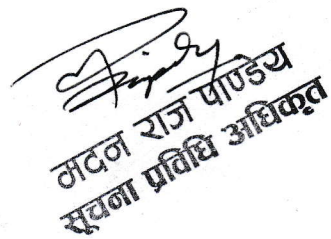 मदन राज पाण्डेय
सूचना प्रविधि अधिकृत